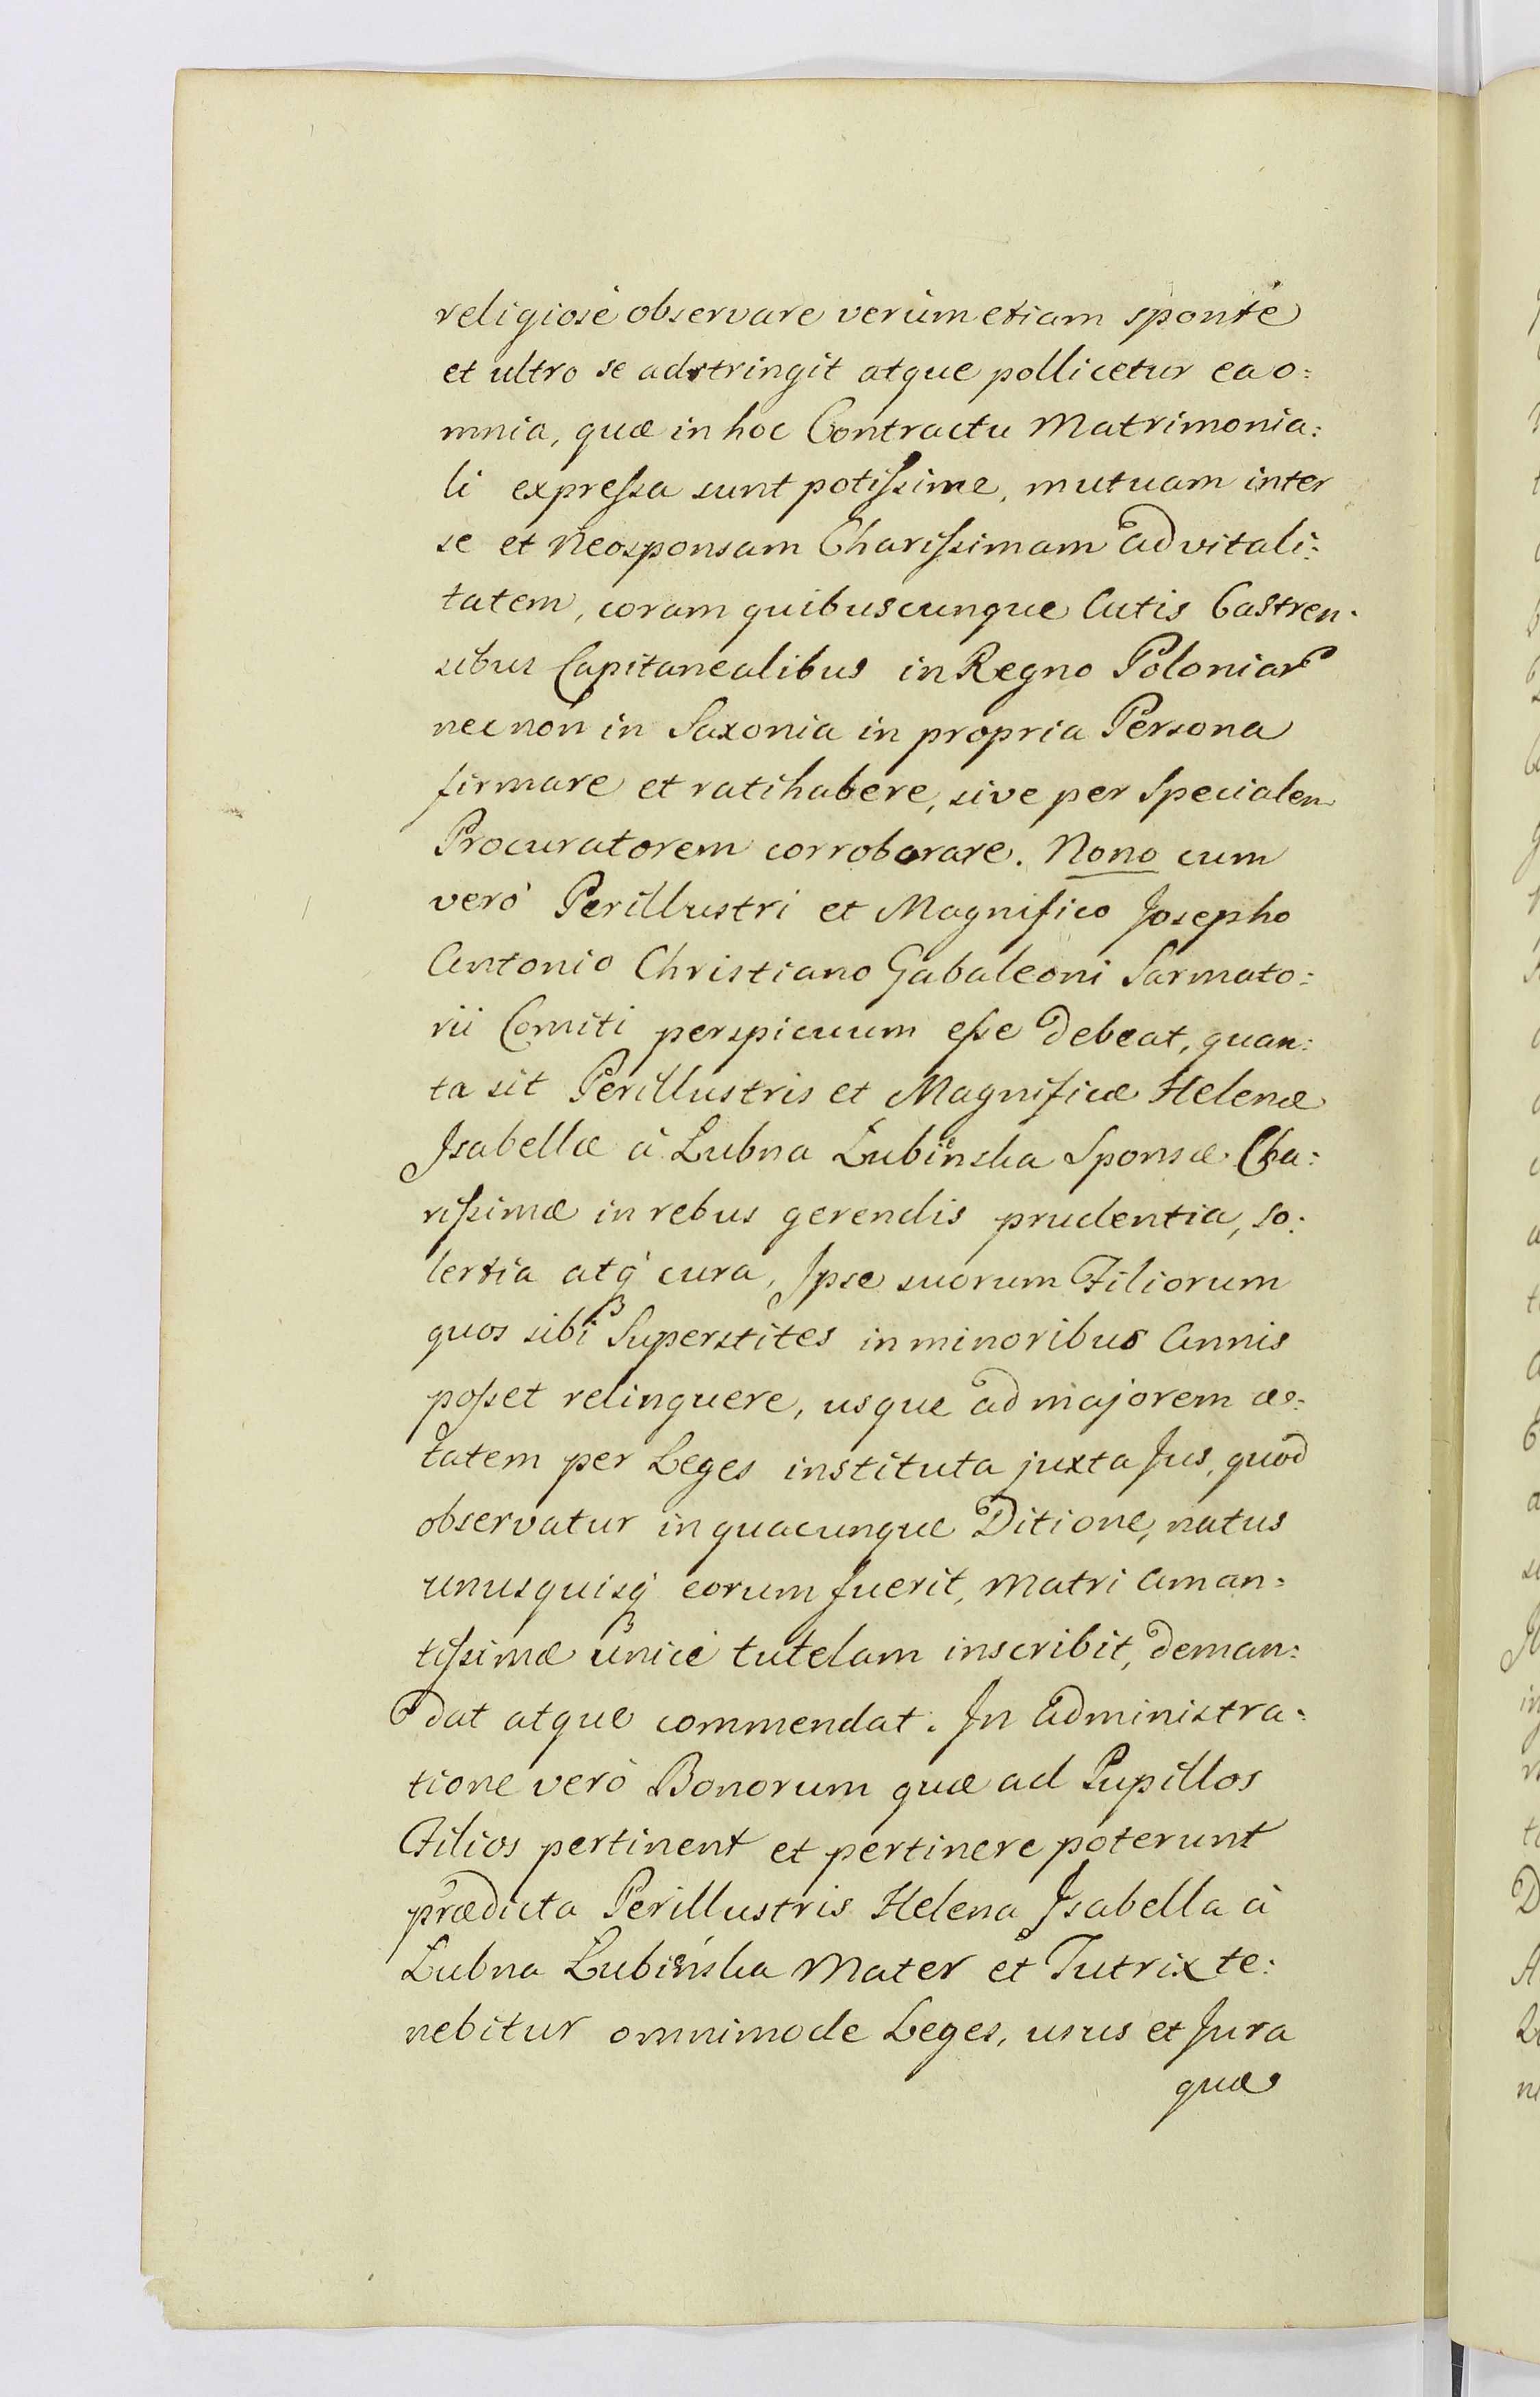 religiosè observare verùm etiam spontè
et ultro se adstringit atque pollicetur ea o:
mnia, quæ in hoc Contractu Matrimonia:
li expreſsa sunt potiſsime, mutuam inter
se et Neosponsam Chariſsimam advitali:
tatem, coram quibuscunque Actis Castren:
sibus Capitanealibus in Regno Poloniar
nec non in Saxonia in propria Persona
firmare et ratihabere, sive per Specialem
Procuratorem corroborare. Nono cum
verò Perillustri et Magnifico Josepho
Antonio Christiano Gabaleoni Sarmato:
rii Comiti perspicuum eſse debeat, quan:
ta sit Perillustris et Magnificæ Helenæ
Isabellæ à Lubna Lubienska Sponsæ Cha:
riſsimæ in rebus gerendis prudentia, so:
lertia atq́ cura, Ipse suorum Filiorum
quos sibi Superstites in minoribus Annis
poſset relinquere, usque ad majorem æ:
tatem per Leges instituta juxta Jus, quod
observatur in quacunque Ditione, natus
unusquisq́ eorum fuerit, Matri Aman:
tiſsimæ unicè tutelam inscribit, deman:
dat atque commendat. In Administra:
tione verò Bonorum quæ ad Pupillos
Filios pertinent et pertinere poterunt
prædicta Perillustris Helena Isabella à
Lubna Lubieńska Mater et Tutrix te:
nebitur omnimode Leges, usus et Jura
quæ